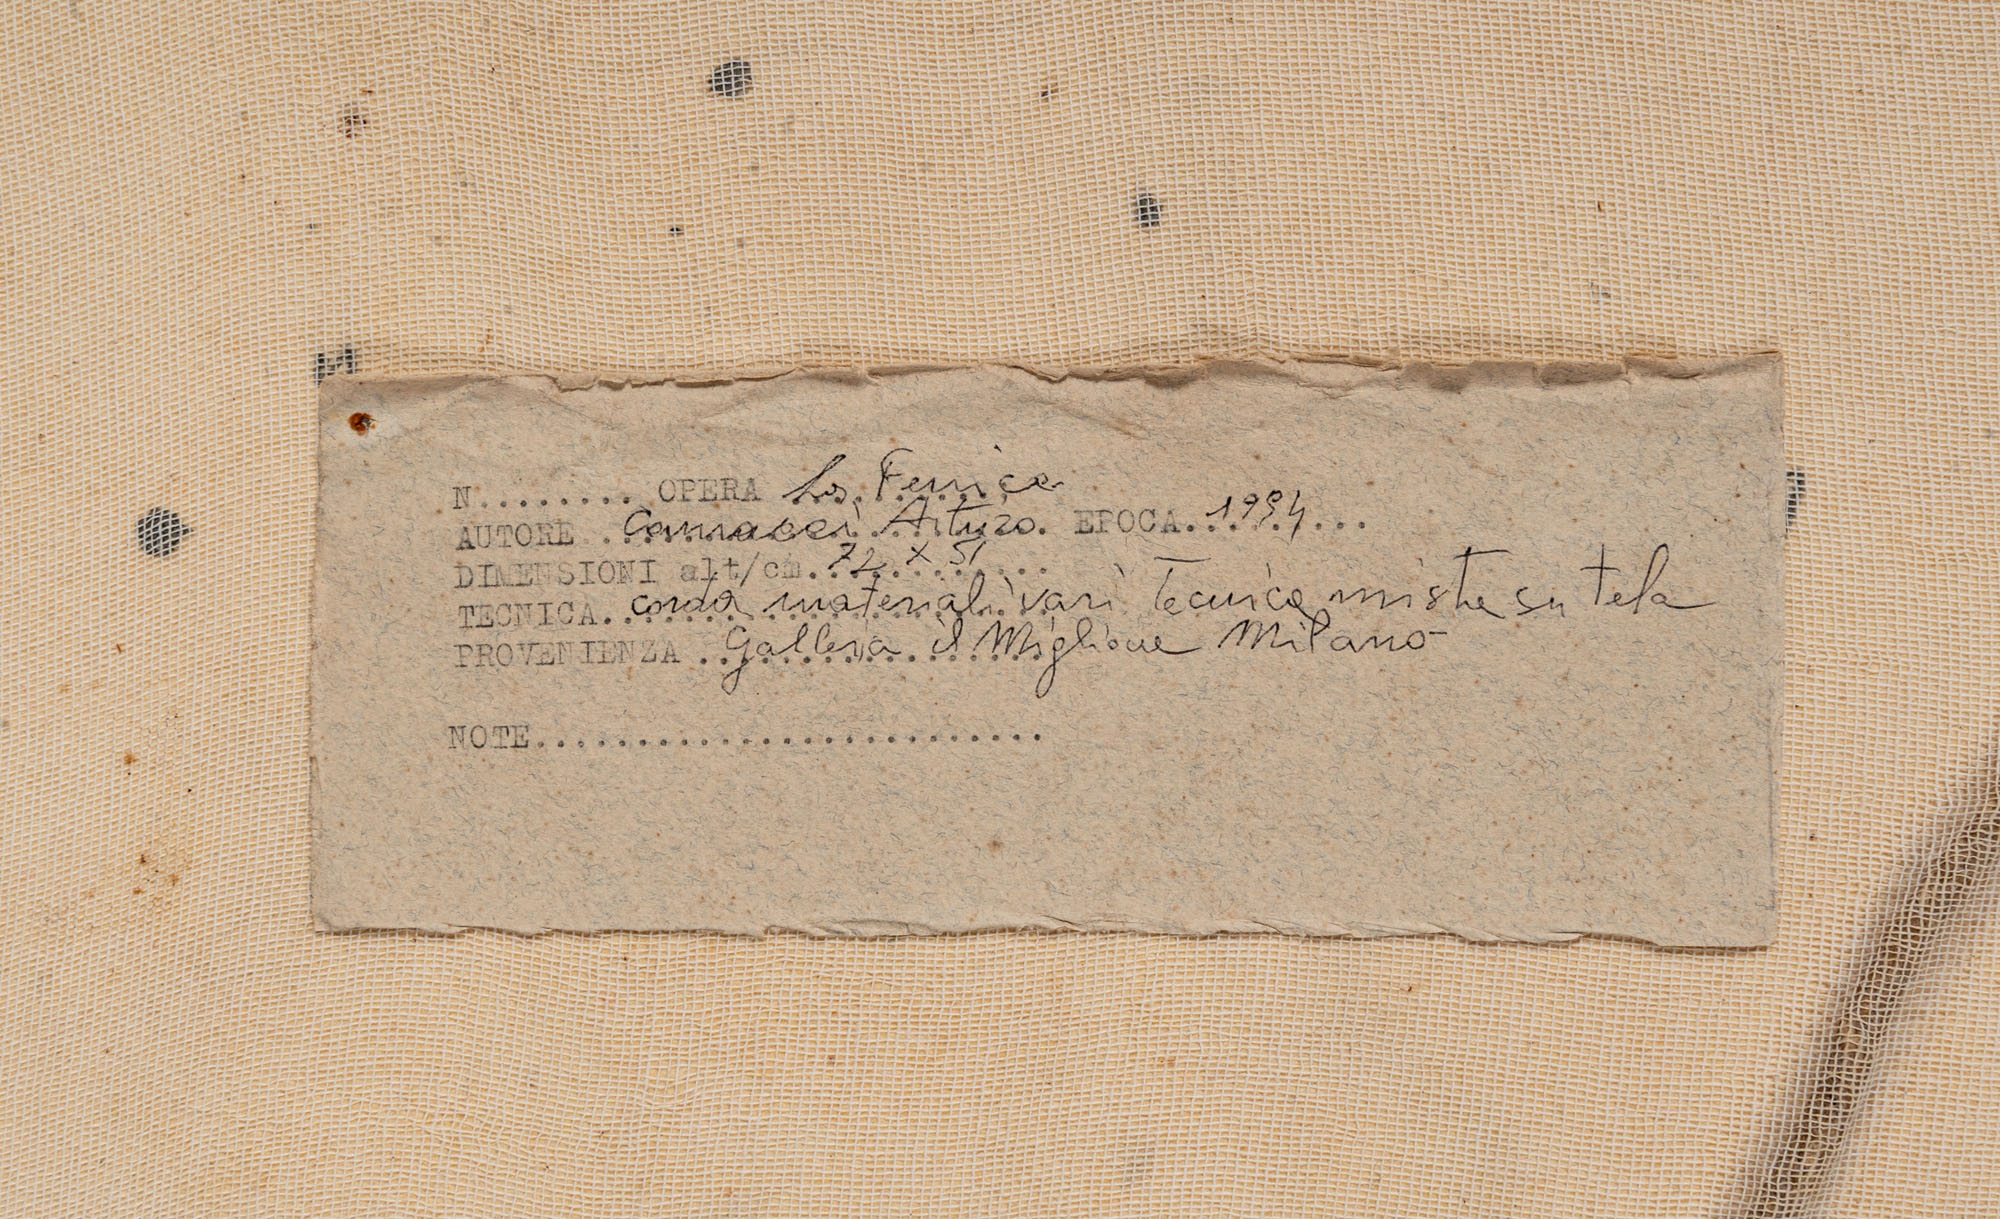 N........ OPERA La Fenice
AUTORE Carmassi Arturo. EPOCA 1994...
DIMENSIONI alt/cm. 72 x 51
TECNICA. corda materiali vari Tecnica mista su tela
PROVENIENZA .. Galleria il Miglione Milano
NOTE.........................